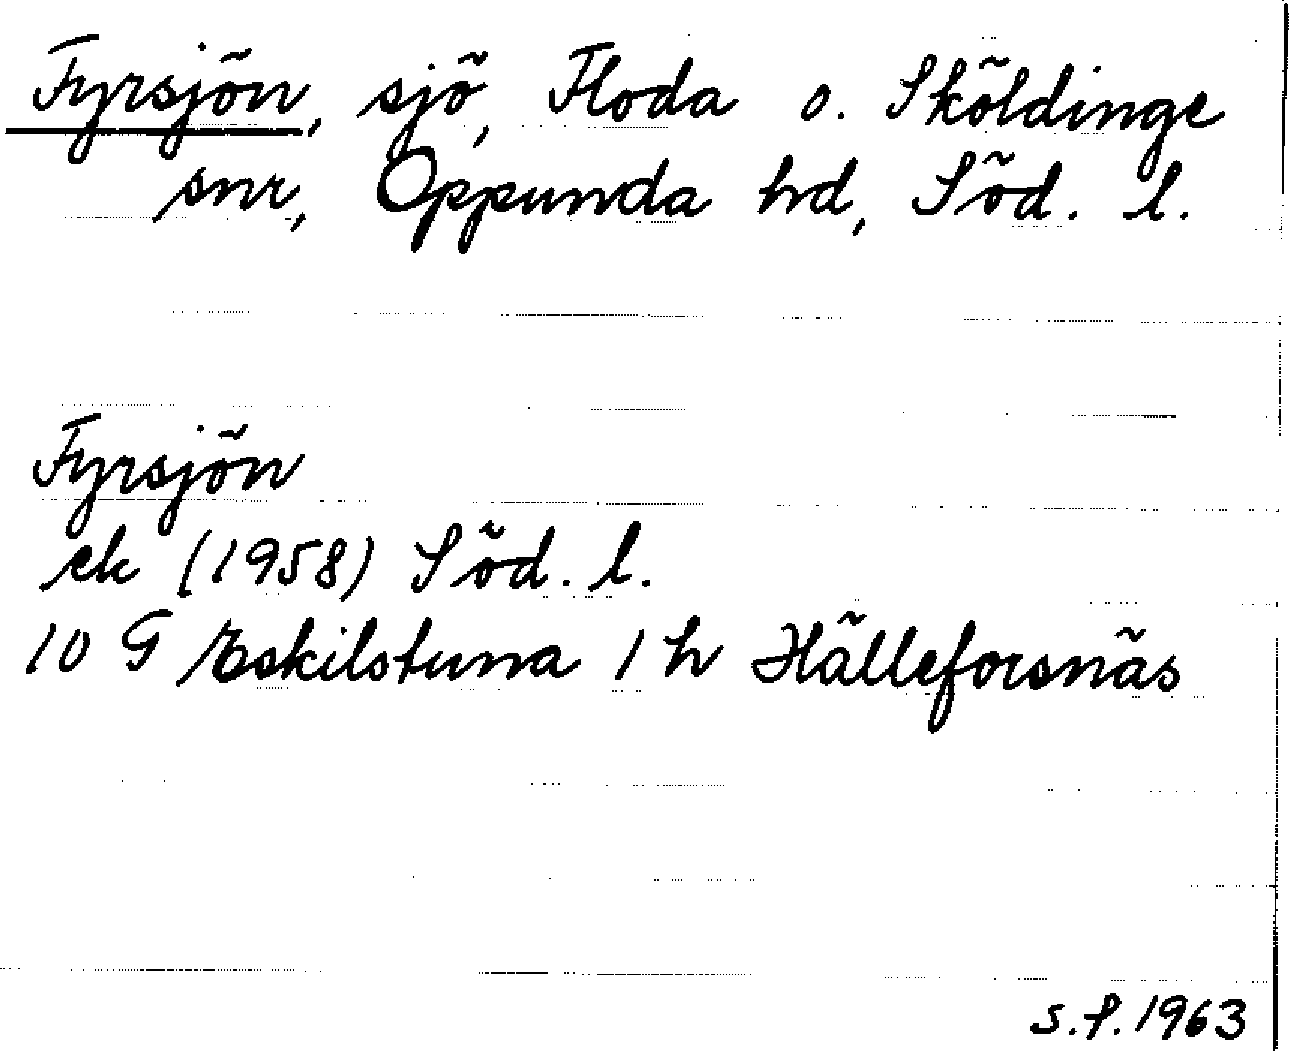 Fyrsjön, sjö, Floda o. Sköldinge
snr, Oppunda hd, Söd. l.
Fyrsjön
ek (1958) Söd. l.
10 G Eskilstuna 1 h Hälleforsnäs
S.P. 1963